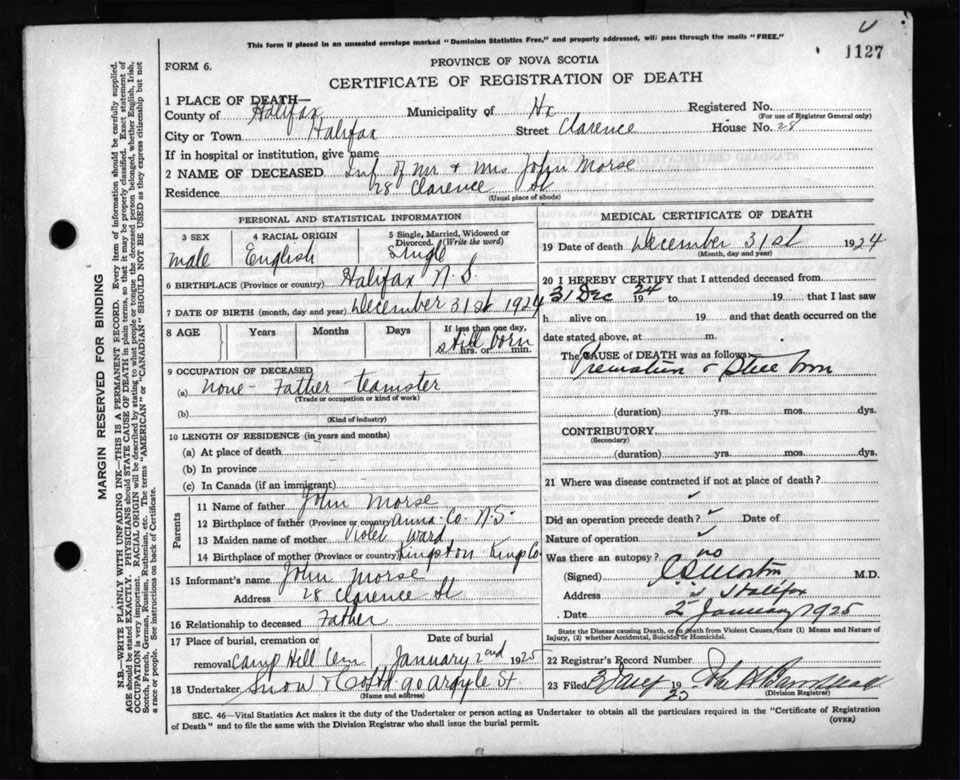 This form if placed in an unsealed envelope marked "Dominion Statistics Free," and properly addressed, will pass through the mails "FREE."
1127
FORM 6.
PROVINCE OF NOVA SCOTIA
CERTIFICATE OF REGISTRATION OF DEATH
MARGIN RESERVED FOR BINDING
N.B.—WRITE PLAINLY WITH UNFADING INK—THIS IS A PERMANENT RECORD. Every item of information should be carefully supplied.
AGE should be stated EXACTLY. PHYSICIANS should STATE CAUSE OF DEATH in plain terms, so that it may be properly classified. Exact statement of
OCCUPATION is very important. RACIAL ORIGIN will be described by stating to what people or tongue the deceased person belonged, whether English, Irish,
Scotch, French, German, Russian, Ruthenian, etc. The terms "AMERICAN" or "CANADIAN" SHOULD NOT BE USED as they express citizenship but not
a race or people. See instructions on back of Certificate.
1 PLACE OF DEATH—
County of Halifax Municipality of Hx Registered No.
(For use of Registrar General only)
City or Town Halifax Street Clarence House No. 28
If in hospital or institution, give name
2 NAME OF DECEASED Inf. of Mr + Mrs John Morse
Residence 28 Clarence St
(Usual place of abode)
PERSONAL AND STATISTICAL INFORMATION
3 SEX male
4 RACIAL ORIGIN English
5 Single, Married, Widowed or Divorced. (Write the word) Single
6 BIRTHPLACE (Province or country) Halifax N.S.
7 DATE OF BIRTH (month, day and year) December 31st 1924
8 AGE Years Months Days If less than one day, hrs. or min. still born
9 OCCUPATION OF DECEASED
(a) None - Father - teamster
(Trade or occupation or kind of work)
(b)
(Kind of industry)
10 LENGTH OF RESIDENCE (in years and months)
(a) At place of death
(b) In province
(c) In Canada (if an immigrant)
Parents
11 Name of father John Morse
12 Birthplace of father (Province or country) Anna- Co. N.S.
13 Maiden name of mother Violet Ward
14 Birthplace of mother (Province or country) Kingston Kings Co
15 Informant's name John Morse
Address 28 Clarence St
16 Relationship to deceased Father
17 Place of burial, cremation or removal Camp Hill Cem Date of burial January 2nd 1925
18 Undertaker Snow & Co Ltd 90 Argyle St
(Name and address)
MEDICAL CERTIFICATE OF DEATH
19 Date of death December 31st 1924
(Month, day and year)
20 I HEREBY CERTIFY that I attended deceased from
31 Dec 1924 to 19 that I last saw
h alive on 19 and that death occurred on the
date stated above, at m.
The CAUSE OF DEATH was as follows:
Still born
(duration) yrs. mos. dys.
CONTRIBUTORY
(Secondary)
(duration) yrs. mos. dys.
21 Where was disease contracted if not at place of death?
Did an operation precede death? Date of
Nature of operation
Was there an autopsy? no
(Signed) M.D.
Address Halifax
Date 2 January 1925
State the Disease causing Death, or in death from Violent Causes, state (1) Means and Nature of
Injury, (2) whether Accidental, Suicidal or Homicidal.
22 Registrar's Record Number
23 Filed 1925
(Division Registrar)
SEC. 46—Vital Statistics Act makes it the duty of the Undertaker or person acting as Undertaker to obtain all the particulars required in the "Certificate of Registration
of Death" and to file the same with the Division Registrar who shall issue the burial permit.
(OVER)